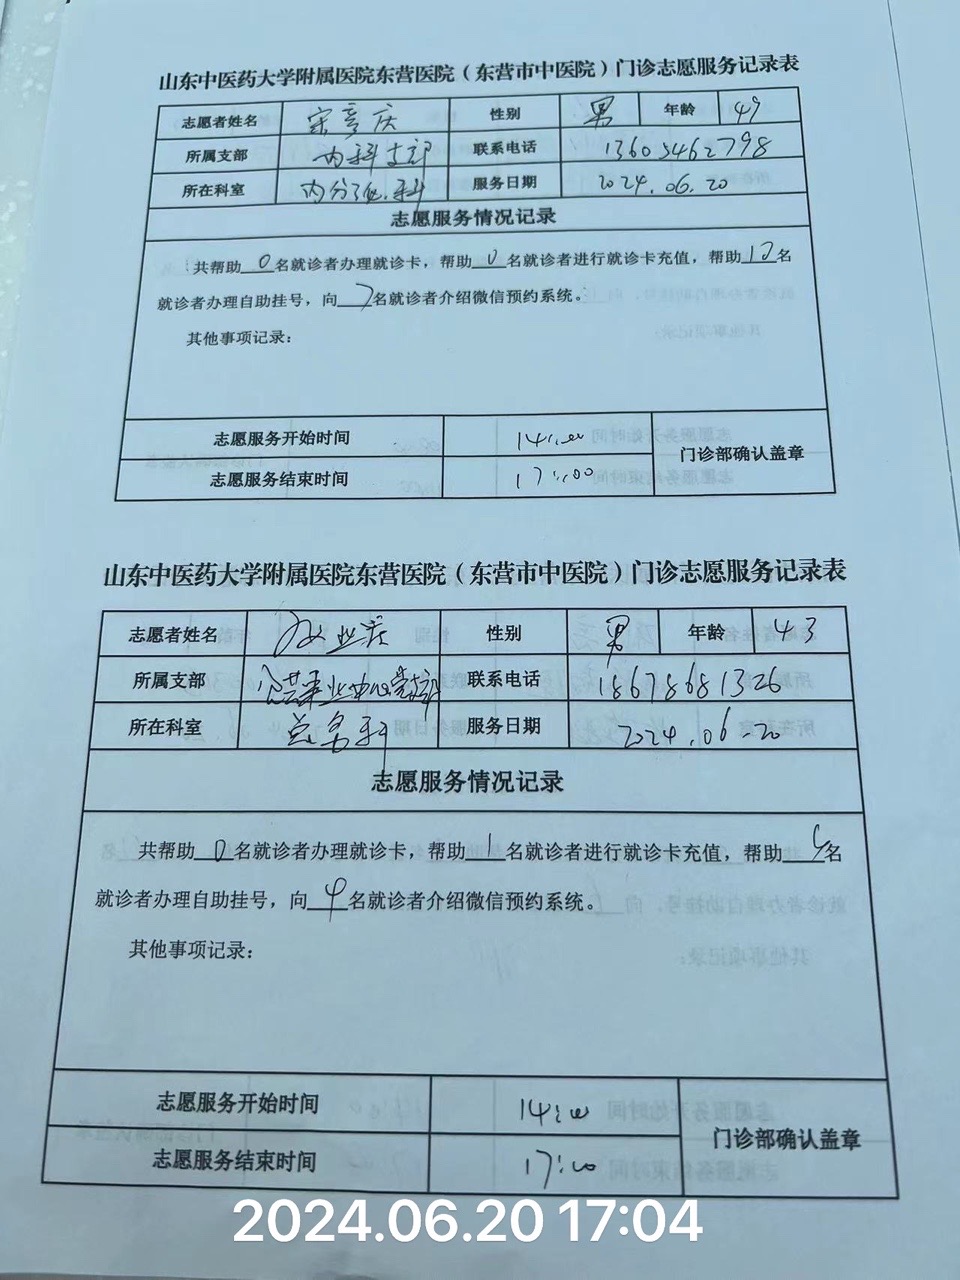 山东中医药大学附属医院东营医院（东营市中医院）门诊志愿服务记录表
志愿者姓名 宋彦庆 性别 男 年龄 49
所属支部 内科支部 联系电话 13605462798
所在科室 内分泌科 服务日期 2024.06.20
志愿服务情况记录
共帮助0名就诊者办理就诊卡，帮助0名就诊者进行就诊卡充值，帮助12名
就诊者办理自助挂号，向7名就诊者介绍微信预约系统。
其他事项记录：
志愿服务开始时间 14:00
门诊部确认盖章
志愿服务结束时间 17:00
山东中医药大学附属医院东营医院（东营市中医院）门诊志愿服务记录表
志愿者姓名 业庆 性别 男 年龄 43
所属支部 公共事业中心党支部 联系电话 18678681326
所在科室 总务科 服务日期 2024.06.20
志愿服务情况记录
共帮助0名就诊者办理就诊卡，帮助1名就诊者进行就诊卡充值，帮助名
就诊者办理自助挂号，向4名就诊者介绍微信预约系统。
其他事项记录：
志愿服务开始时间 14:00
门诊部确认盖章
志愿服务结束时间 17:00
2024.06.20 17:04